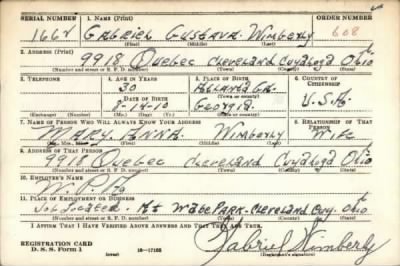 SERIAL NUMBER 1. NAME (Print) ORDER NUMBER
1662 GABRIEL GUSTAVA Wimberly 608
(First) (Middle) (Last)
2. ADDRESS (Print)
9918 Quebec Cleveland Cuyahoga Ohio
(Number and street or R. F. D. number) (Town) (County) (State)
3. TELEPHONE 4. AGE IN YEARS 5. PLACE OF BIRTH 6. COUNTRY OF CITIZENSHIP
30 Atlanta GA.
DATE OF BIRTH (Town or county)
8-14-10 Georgia U.S.A
(Exchange) (Number) (Mo.) (Day) (Yr.) (State or country)
7. NAME OF PERSON WHO WILL ALWAYS KNOW YOUR ADDRESS 8. RELATIONSHIP OF THAT PERSON
MARY. ANNA. Wimberly Wife
(Mr., Mrs., Miss) (First) (Middle) (Last)
9. ADDRESS OF THAT PERSON
9918 Quebec Cleveland Cuyahoga Ohio
(Number and street or R. F. D. number) (Town) (County) (State)
10. EMPLOYER'S NAME
W. P.
11. PLACE OF EMPLOYMENT OR BUSINESS
Job Located. At Wade PARK-Cleveland Cuy. Ohio
(Number and street or R. F. D. number) (Town) (County) (State)
I AFFIRM THAT I HAVE VERIFIED ABOVE ANSWERS AND THAT THEY ARE TRUE.
REGISTRATION CARD
D. S. S. Form 1 (over) 16-17105 Gabriel Wimberly
(Registrant's signature)